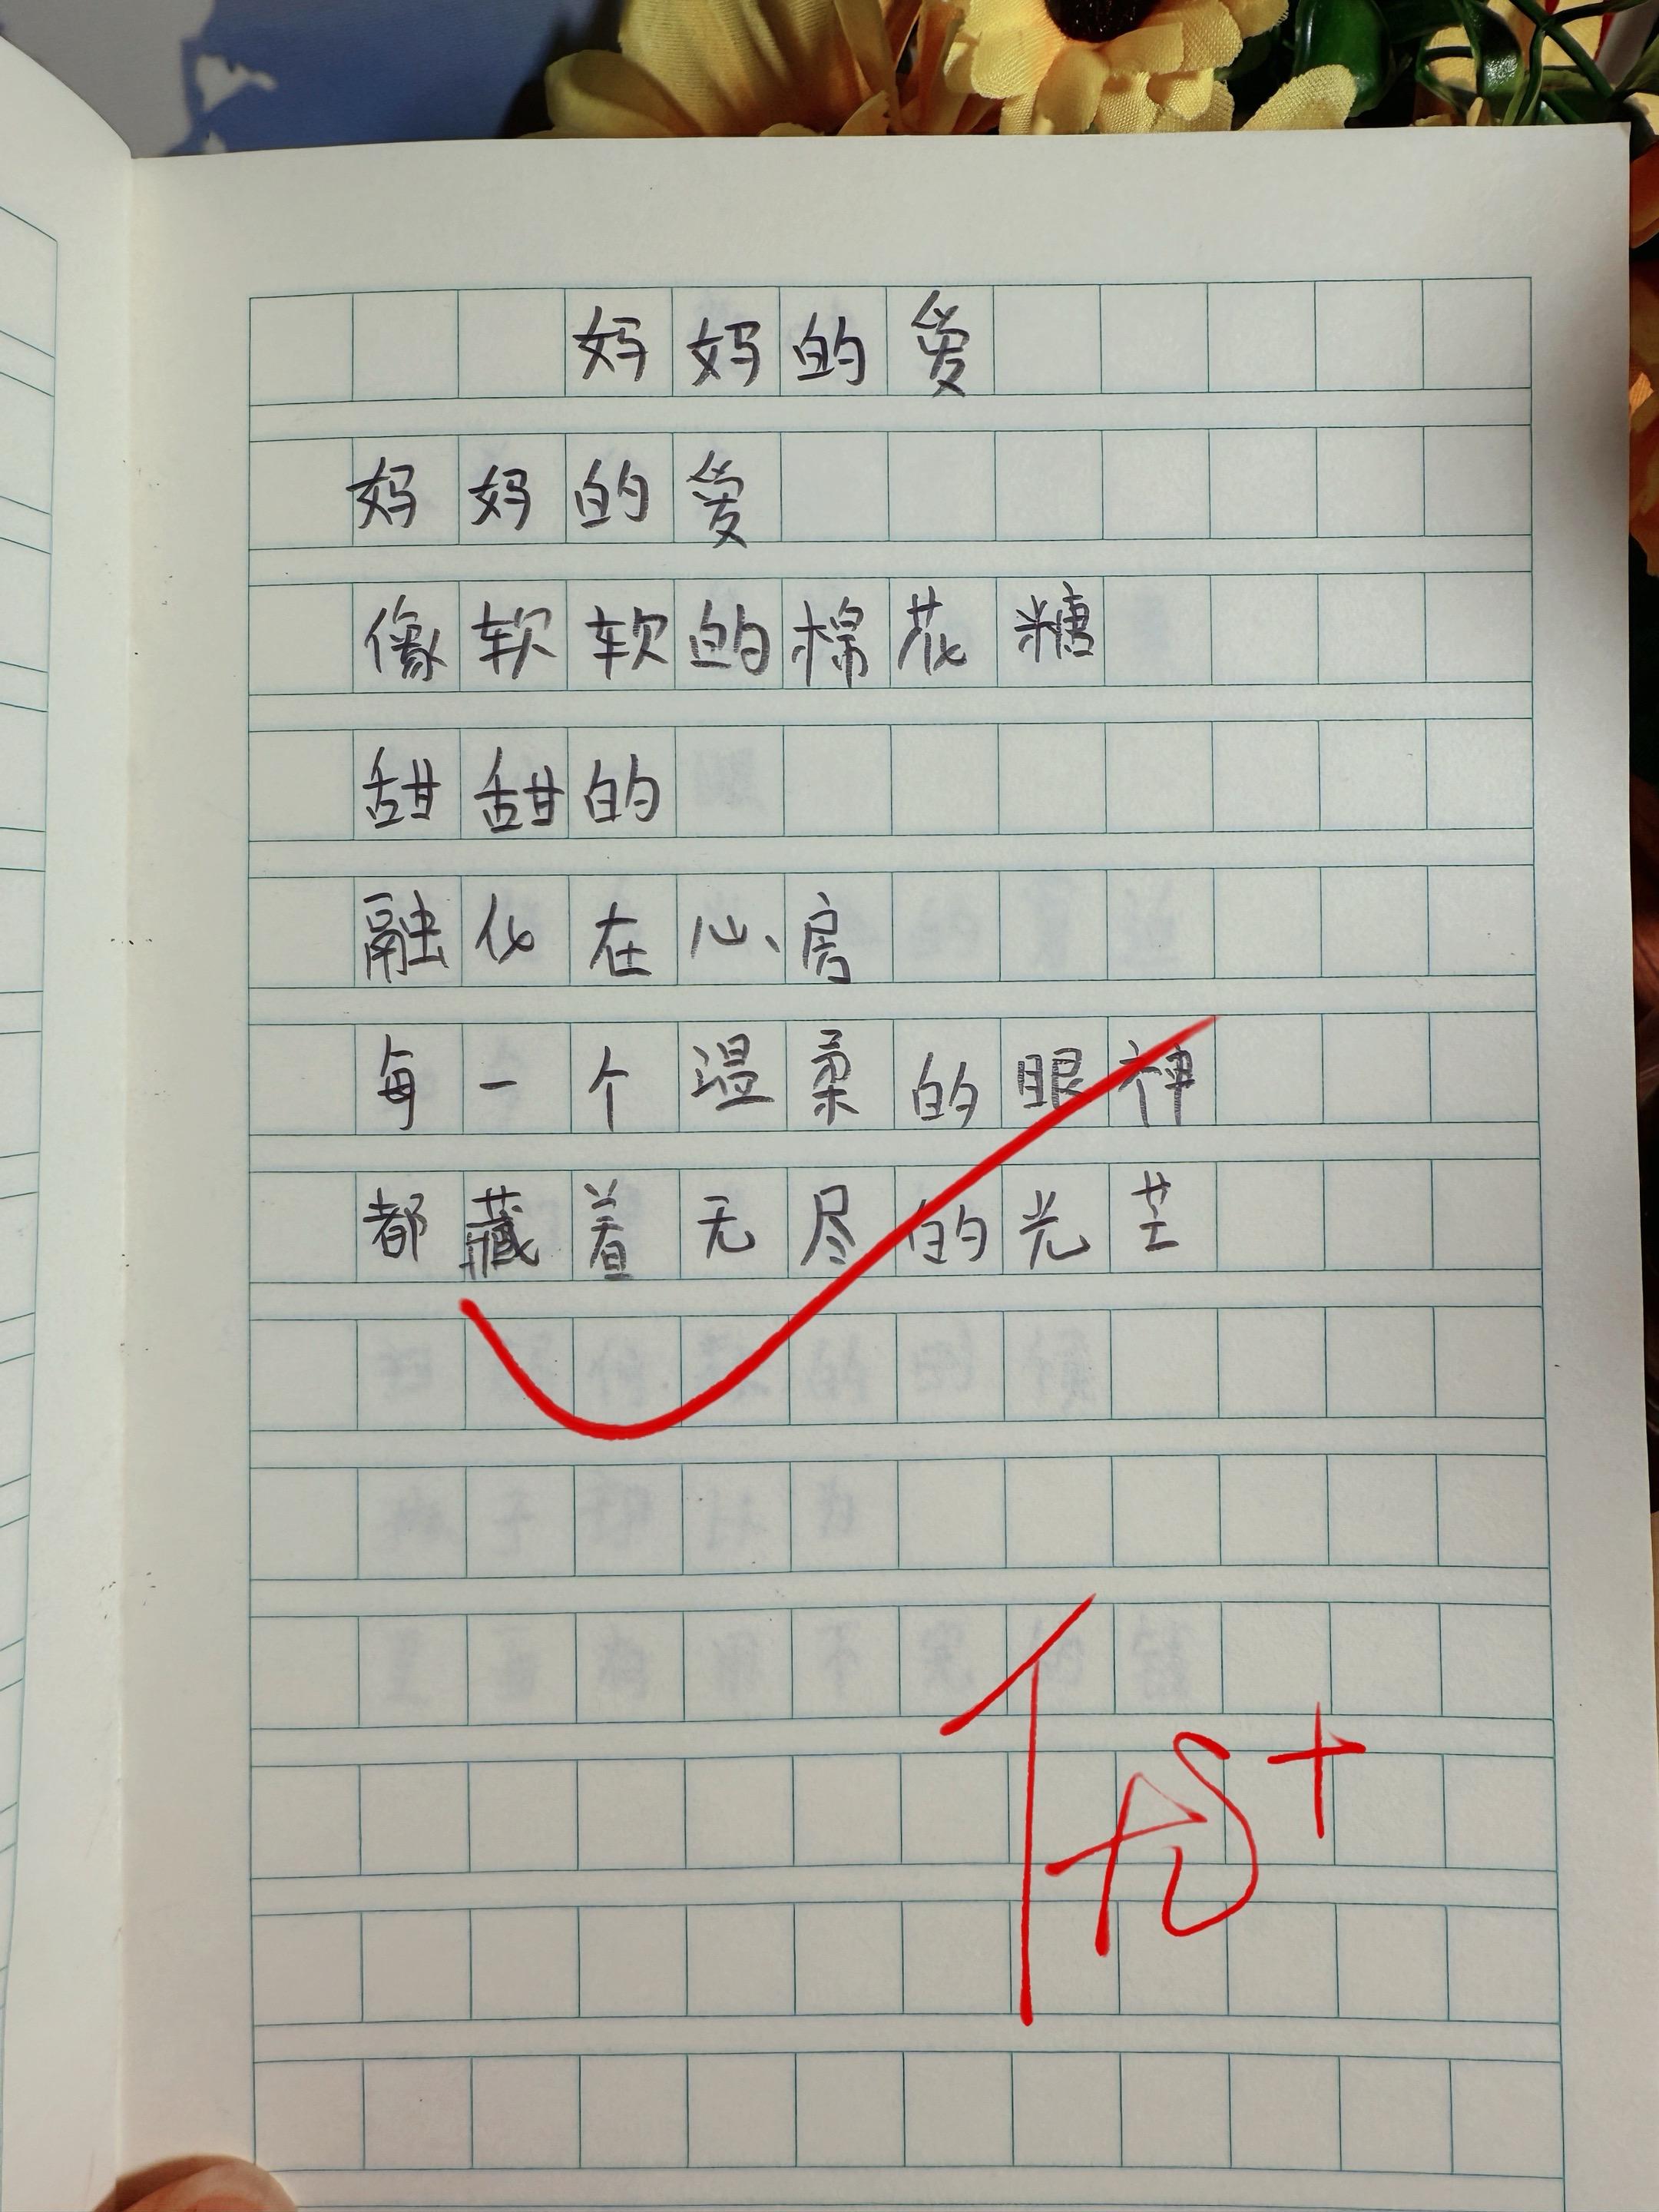 妈妈的爱
妈妈的爱
像软软的棉花糖
甜甜的
融化在心房
每一个温柔的眼神
都藏着无尽的光芒